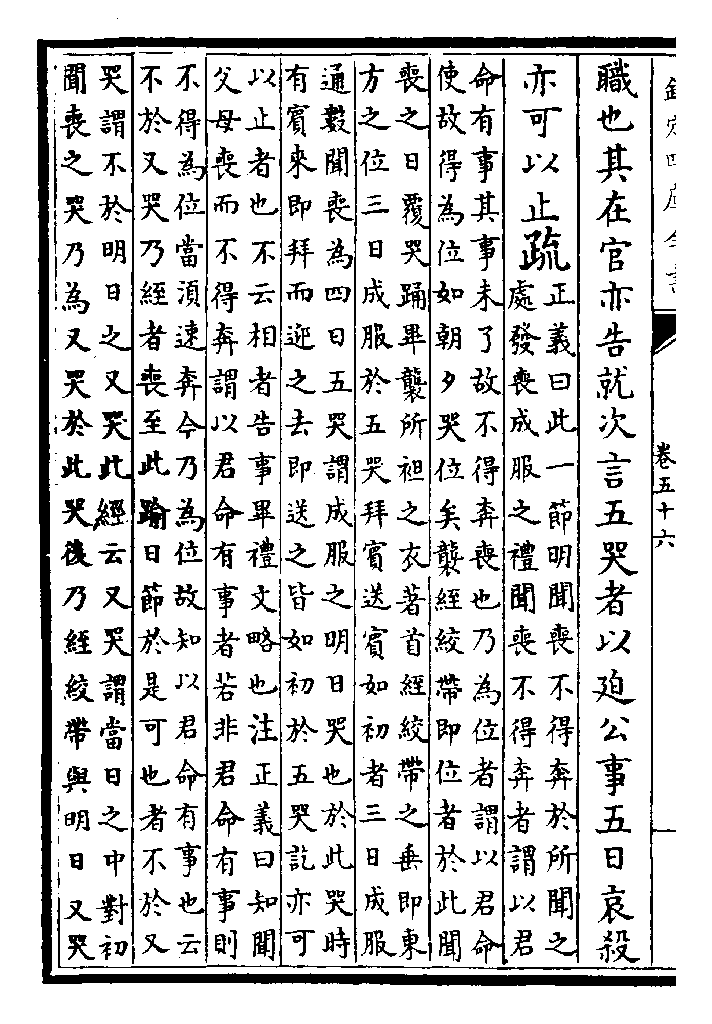 欽定四庫全書 卷五十六
職也其在官亦告就次言五哭者以廹公事五日哀殺
亦可以止疏
正義曰此一節明聞喪不得奔於所聞之
處發喪成服之禮聞喪不得奔者謂以君
命有事其事未了故不得奔喪也乃為位者謂以君命
使故得為位如朝夕哭位矣襲絰絞帶即位者於此聞
喪之日覆哭踊畢襲所袒之衣著首絰絞帶之垂即東
方之位三日成服於五哭拜賓送賓如初者三日成服
通數聞喪為四日五哭謂成服之明日哭也於此哭時
有賓來即拜而迎之去即送之皆如初於五哭訖亦可
以止者也不云相者告事畢禮文略也注正義曰知聞
父母喪而不得奔謂以君命有事者若非君命有事則
不得為位當須速奔今乃為位故知以君命有事也云
不於又哭乃絰者喪至此踰日節於是可也者不於又
哭謂不於明日之又哭此經云又哭謂當日之中對初
聞喪之哭乃為又哭於此哭後乃絰絞帶與明日又哭